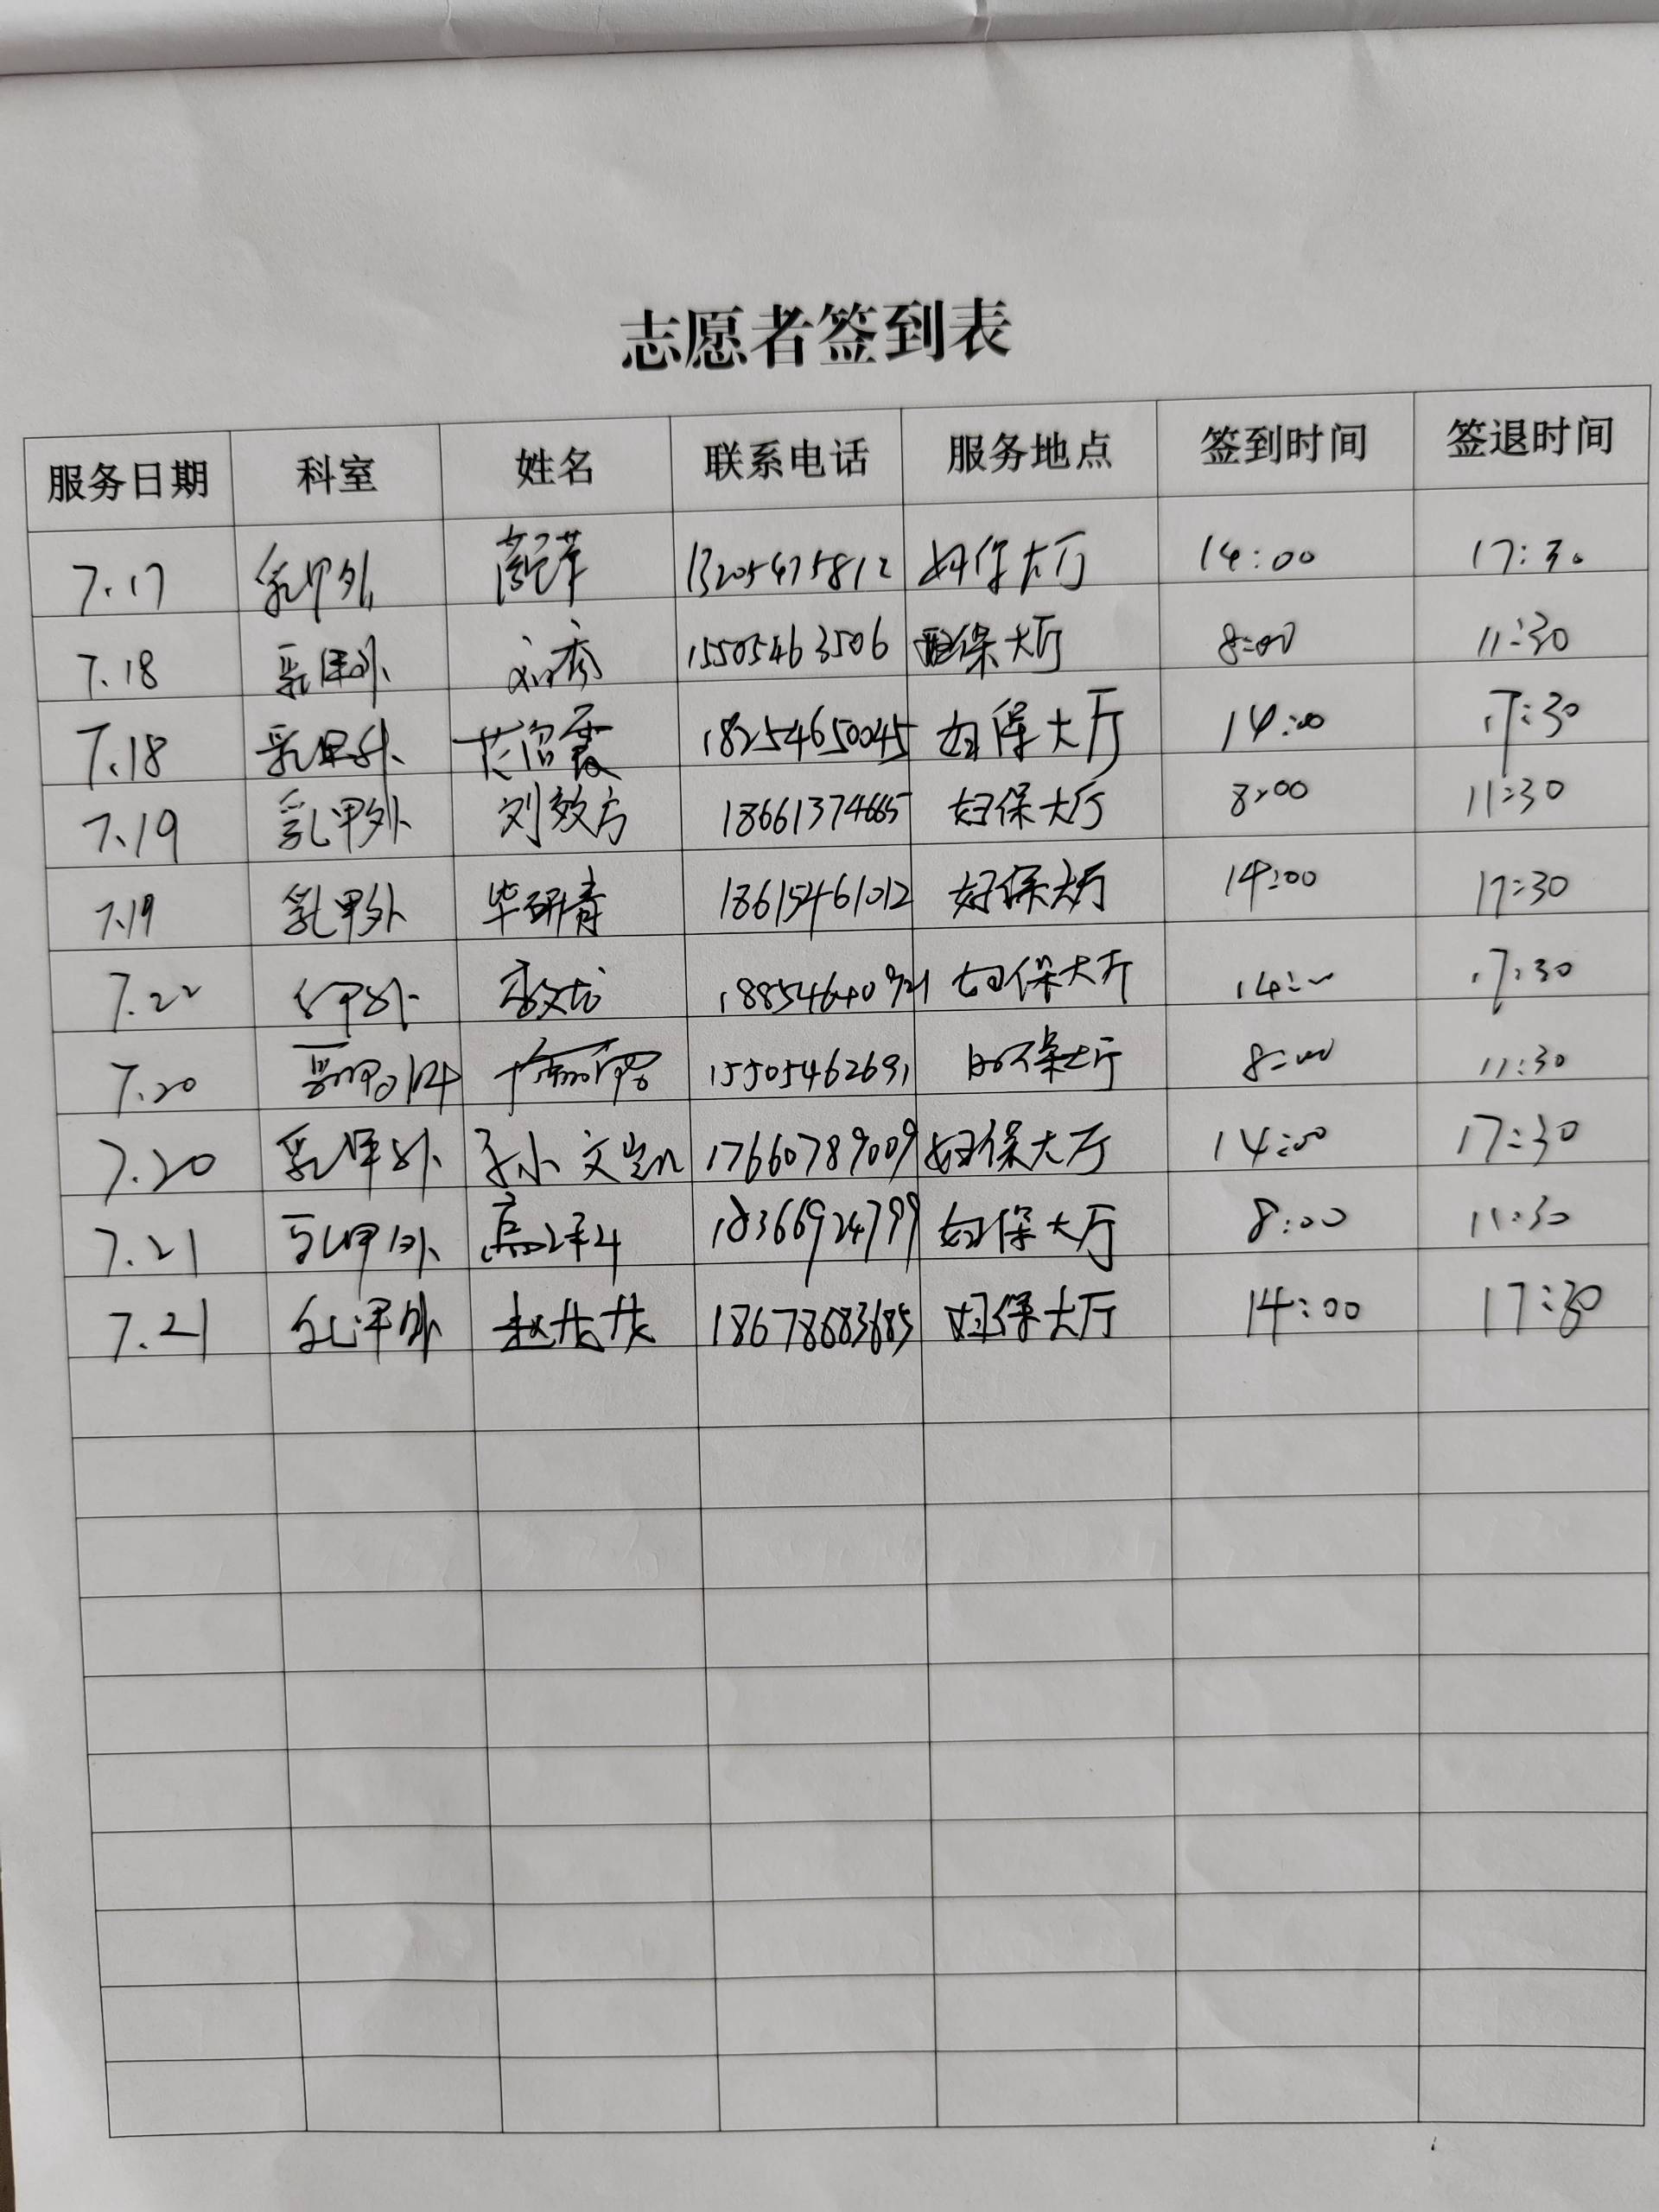 志愿者签到表
服务日期 科室 姓名 联系电话 服务地点 签到时间 签退时间
7.17 乳甲外 13205475812 妇保大厅 14:00 17:30
7.18 乳甲外 刘秀 15505463506 妇保大厅 8:00 11:30
7.18 乳甲外 18254650045 妇保大厅 14:00 17:30
7.19 乳甲外 刘效方 18661374665 妇保大厅 8:00 11:30
7.19 乳甲外 毕研青 18615461012 妇保大厅 14:00 17:30
7.22 乳甲外 妇保大厅 14:00 17:30
7.20 乳甲外 15505462691 妇保大厅 8:00 11:30
7.20 乳甲外 孙文凯 17660789009 妇保大厅 14:00 17:30
7.21 乳甲外 18366924799 妇保大厅 8:00 11:30
7.21 乳甲外 赵龙龙 18678683685 妇保大厅 14:00 17:30